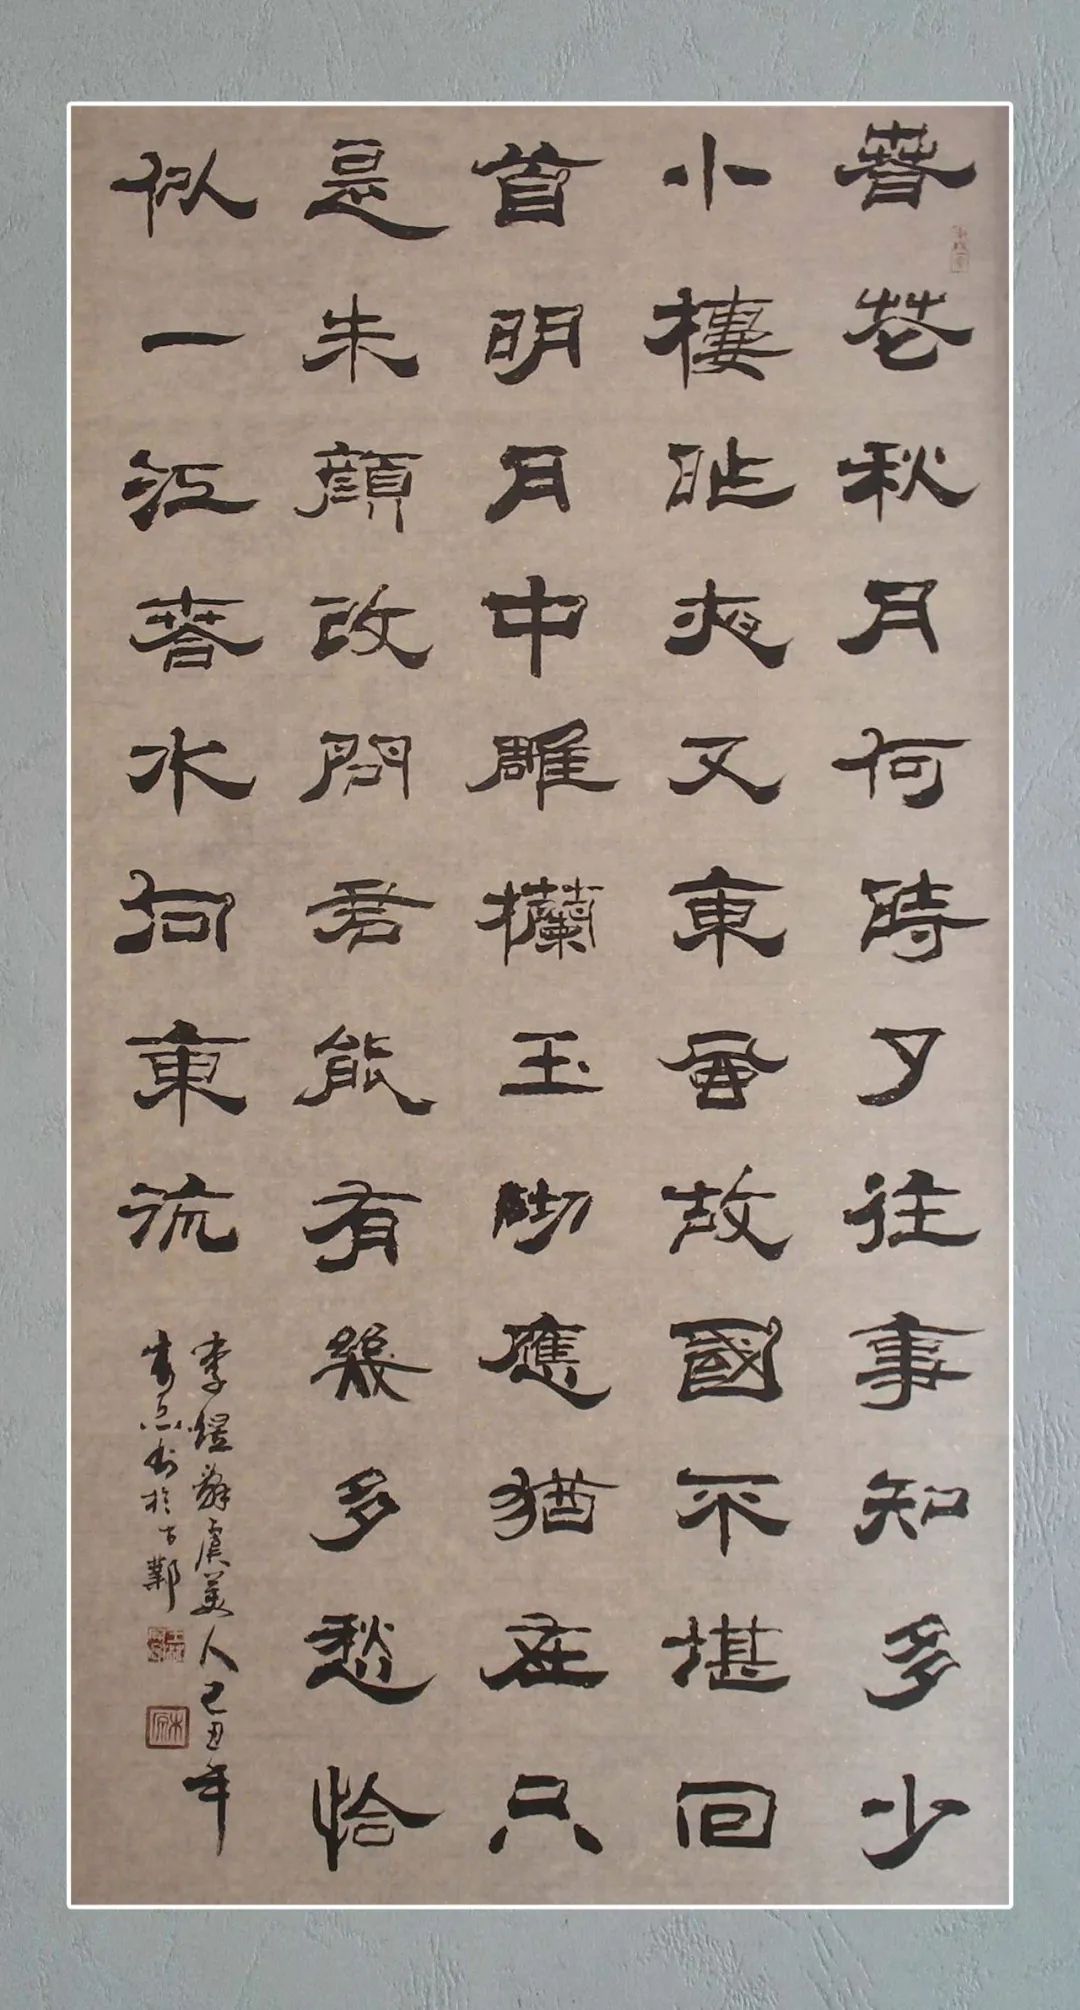 春花秋月何時了往事知多少
小樓昨夜又東風故國不堪回
首明月中雕欄玉砌應猶在只
是朱顏改問君能有幾多愁恰
似一江春水向東流
李煜辭虞美人己丑年
书於古鄴